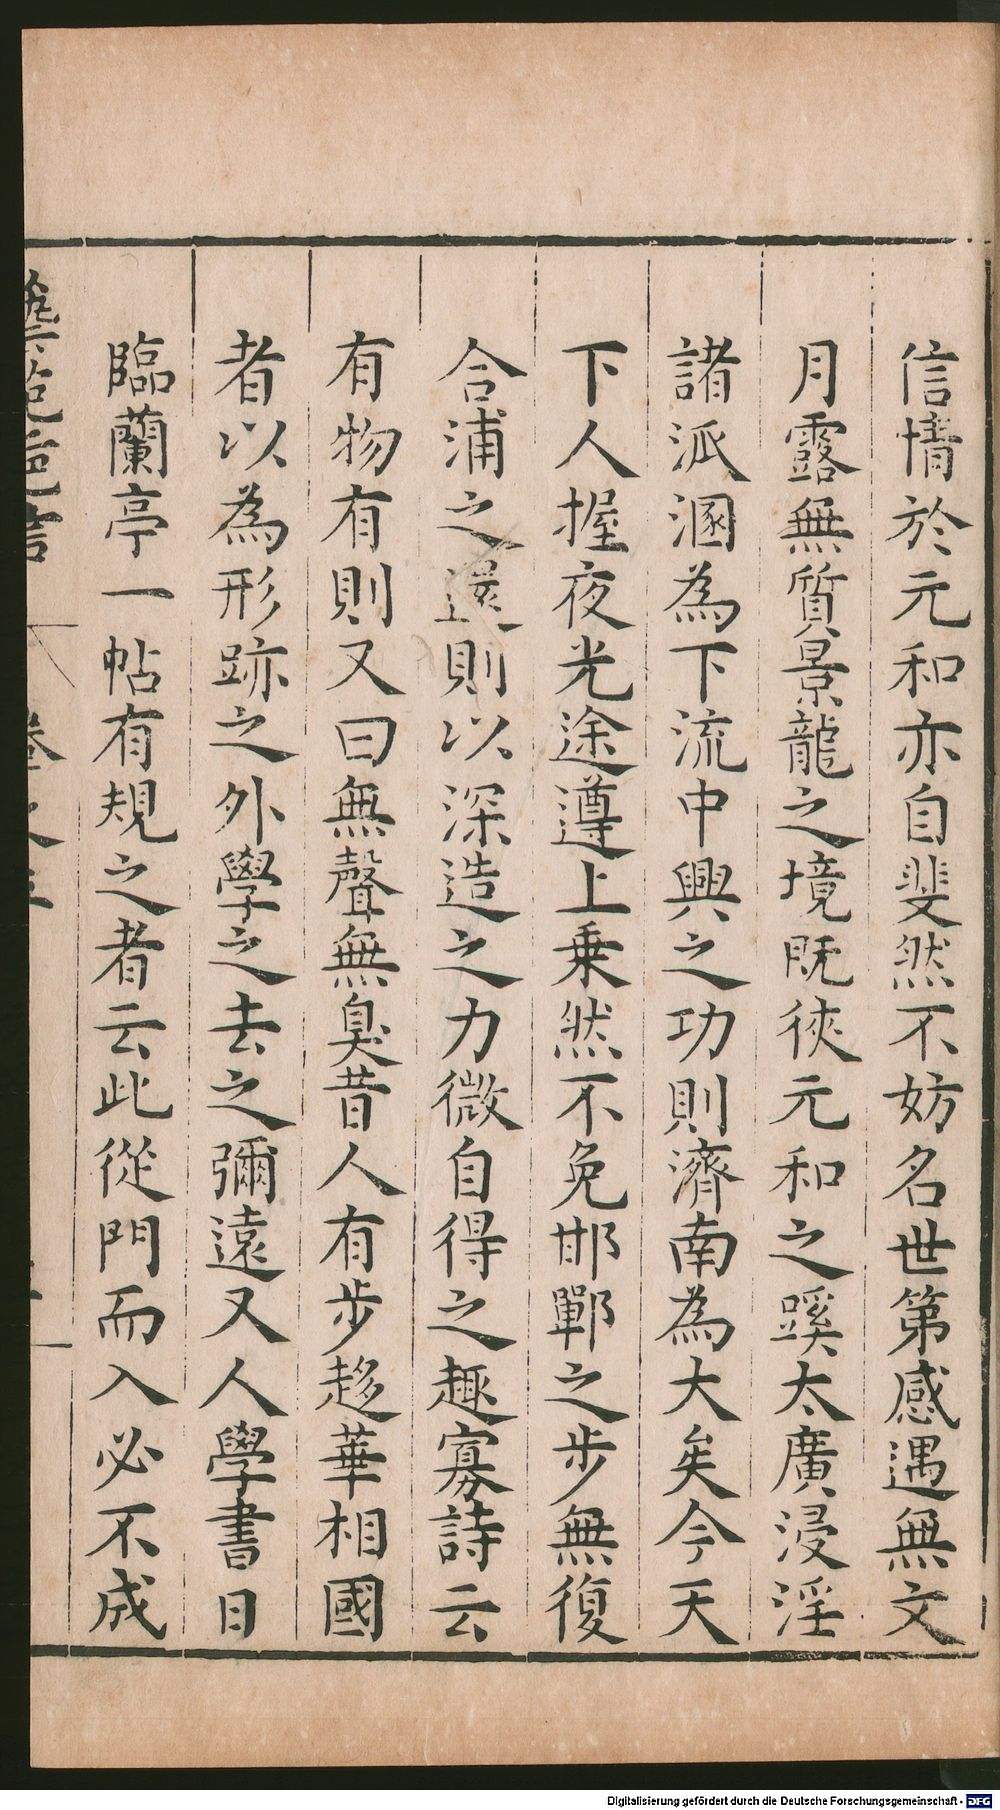 信情於元和亦自斐然不妨名世第感遇無文
月露無質景龍之境既狹元和之蹊太廣浸淫
諸派溷為下流中興之功則濟南為大矣今天
下人握夜光途遵上乘然不免邯鄲之步無復
合浦之還則以深造之力微自得之趣寡詩云
有物有則又曰無聲無臭昔人有步趍華相國
者以為形跡之外學之去之彌遠又人學書日
臨蘭亭一帖有規之者云此從門而入必不成
Digitalisierung gefördert durch die Deutsche Forschungsgemeinschaft - DFG